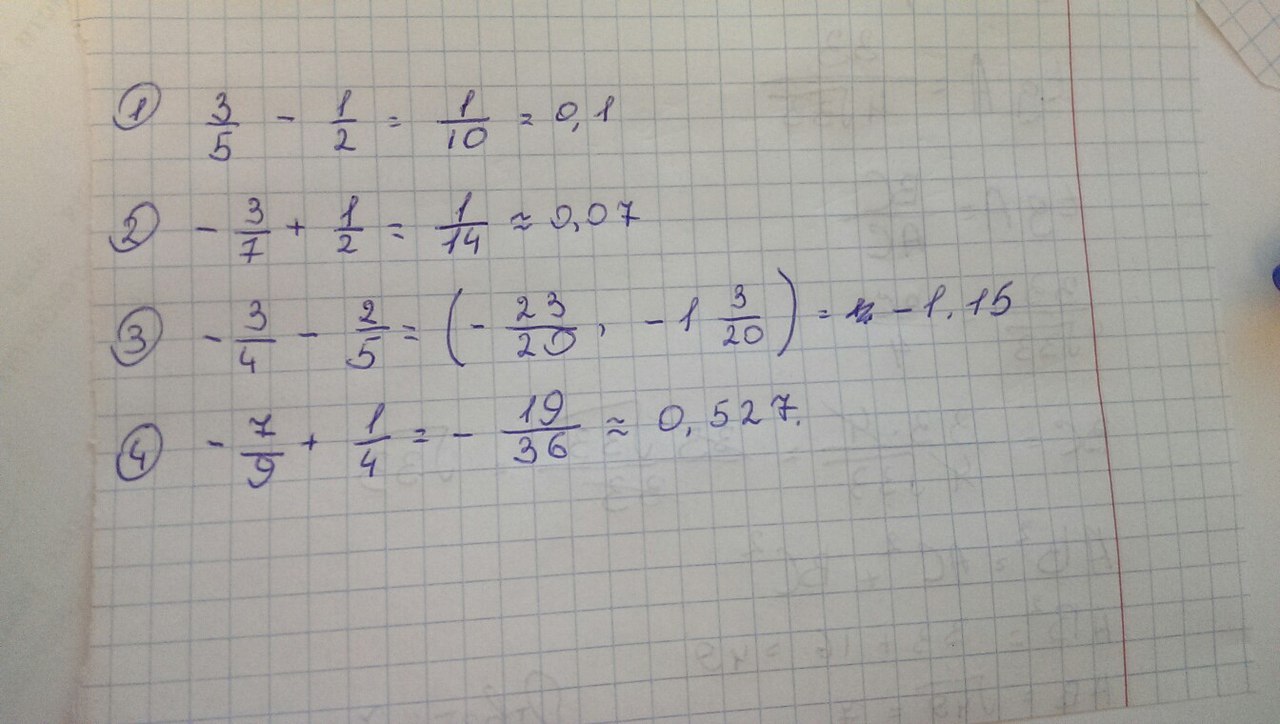 ① 3/5 - 1/2 = 1/10 = 0,1
② - 3/7 + 1/2 = 1/14 ≈ 0,07
③ - 3/4 - 2/5 = (- 23/20, - 1 3/20) = - 1.15
④ - 7/9 + 1/4 = - 19/36 ≈ 0,527.